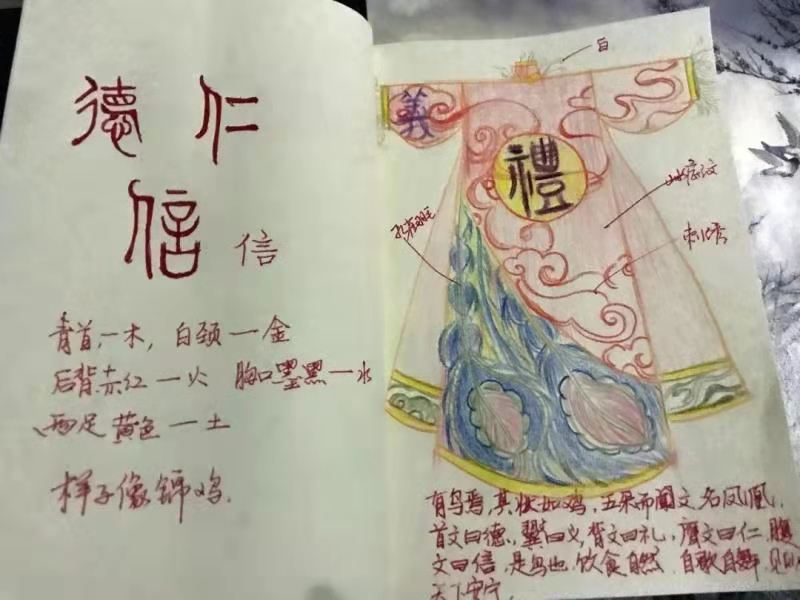 德 仁
信 信
青首,一木, 白颈一金
后背赤红一火 胸口墨黑一水
两足黄色一土
样子像锦鸡.
白
義
禮
刺绣
有鸟焉,其状如鸡,五采而闻文,名凤凰,
首文曰德,翼曰义,背文曰礼,膺文曰仁,腹
文曰信,是鸟也,饮食自然,自歌自舞,见则
天下安宁.